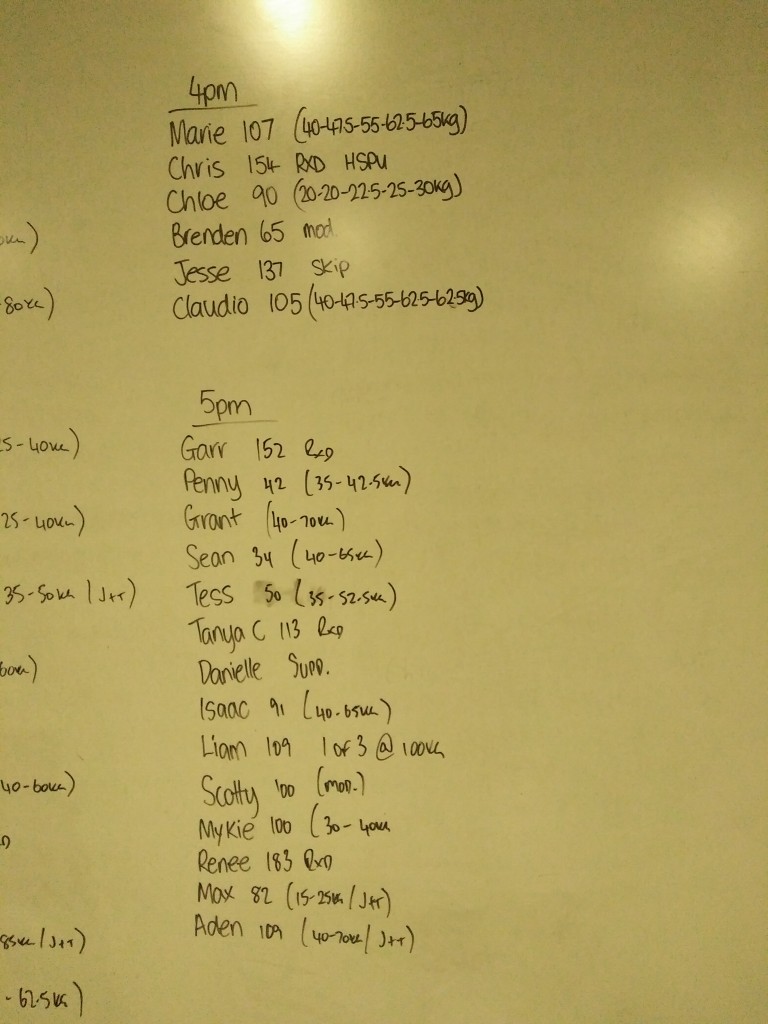 4pm
Marie 107 (40-47.5-55-62.5-65kg)
Chris 154 RXD HSPU
Chloe 90 (20-20-22.5-25-30kg)
Brenden 65 mod
Jesse 137 skip
Claudio 105 (40-47.5-55-62.5-62.5kg)
5pm
Garr 152 RxD
Penny 42 (35-42.5kg)
Grant (40-70kg)
Sean 34 (40-65kg)
Tess 50 (35-52.5kg)
Tanya C 113 RxD
Danielle Supp.
Isaac 91 (40-65kg)
Liam 109 1 of 3 @ 100kg
Scotty 100 (mod.)
Mykie 100 (30-40kg
Renee 183 RxD
Max 82 (15-25kg / J++)
Aden 109 (40-70kg / J++)
-80kg)
5-40kg)
25-40kg)
35-50kg / J++)
60kg)
40-60kg)
85kg / J++)
-62.5kg)